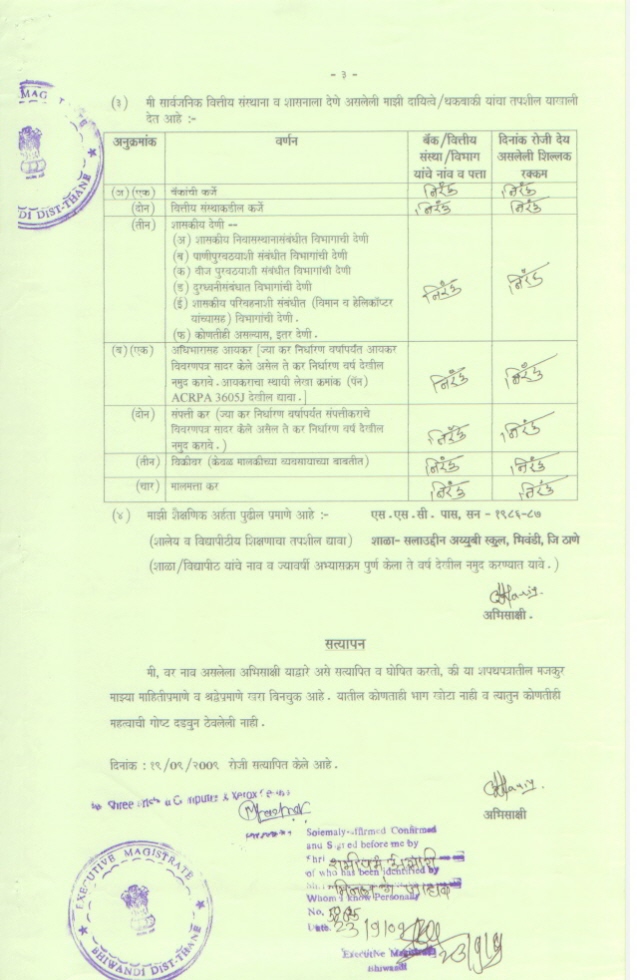 - ३ -
(३) मी सार्वजनिक वित्तीय संस्थाना व शासनाला देणे असलेली माझी दायित्वे/थकबाकी यांचा तपशील याखाली
देत आहे :-
अनुक्रमांक वर्णन बँक/वित्तीय संस्था/विभाग यांचे नांव व पत्ता दिनांक रोजी देय असलेली शिल्लक रक्कम
(अ) (एक) बँकांची कर्जे निरंक निरंक
(दोन) वित्तीय संस्थाकडील कर्जे निरंक निरंक
(तीन) शासकीय देणी --
(अ) शासकीय निवासस्थानासंबंधीत विभागाची देणी
(ब) पाणीपुरवठयाशी संबंधीत विभागांची देणी
(क) वीज पुरवठयाशी संबंधीत विभागांची देणी
(ड) दुरध्वनीसंबंधात विभागांची देणी निरंक निरंक
(ई) शासकीय परिवहनाशी संबंधीत (विमान व हेलिकॉप्टर
यांच्यासह) विभागांची देणी .
(फ) कोणतीही असल्यास, इतर देणी .
(ब) (एक) अधिभारासह आयकर [ज्या कर निर्धारण वर्षापर्यंत आयकर
विवरणपत्र सादर केले असेल ते कर निर्धारण वर्ष देखील
नमुद करावे . आयकराचा स्थायी लेखा क्रमांक (पॅन) निरंक निरंक
ACRPA 3605J देखील द्यावा .]
(दोन) संपत्ती कर (ज्या कर निर्धारण वर्षापर्यंत संपत्तीकराचे
विवरणपत्र सादर केले असेल ते कर निर्धारण वर्ष देखील
नमुद करावे . ) निरंक निरंक
(तीन) विक्रीकर (केवळ मालकीच्या व्यवसायाच्या बाबतीत) निरंक निरंक
(चार) मालमत्ता कर निरंक निरंक
(४) माझी शैक्षणिक अर्हता पुढील प्रमाणे आहे :- एस . एस . सी . पास, सन - १९८६-८७
(शालेय व विद्यापीठीय शिक्षणाचा तपशील द्यावा) शाळा- सलाउद्दीन अय्युबी स्कुल, भिवंडी, जि ठाणे
(शाळा/विद्यापीठ यांचे नाव व ज्यावर्षी अभ्यासक्रम पुर्ण केला ते वर्ष देखील नमुद करण्यात यावे . )
अभिसाक्षी .
सत्यापन
मी, वर नाव असलेला अभिसाक्षी याद्वारे असे सत्यापित व घोषित करतो, की या शपथपत्रातील मजकुर
माझ्या माहितीप्रमाणे व श्रद्धेप्रमाणे खरा बिनचुक आहे . यातील कोणताही भाग खोटा नाही व त्यातुन कोणतीही
महत्वाची गोष्ट दडवुन ठेवलेली नाही .
दिनांक : १९/०९/२००९ रोजी सत्यापित केले आहे .
अभिसाक्षी
Solemaly-affirmed Confirmed
and Signed before me by
Shri
of who has been identified by
Whom I know Personally
No.
Date. 23/9/09
Executive Magistrate
Bhiwandi
23/9/9
EXECUTIVE MAGISTRATE
BHIWANDI DIST-THANE
MAG
DI DIST-THANE